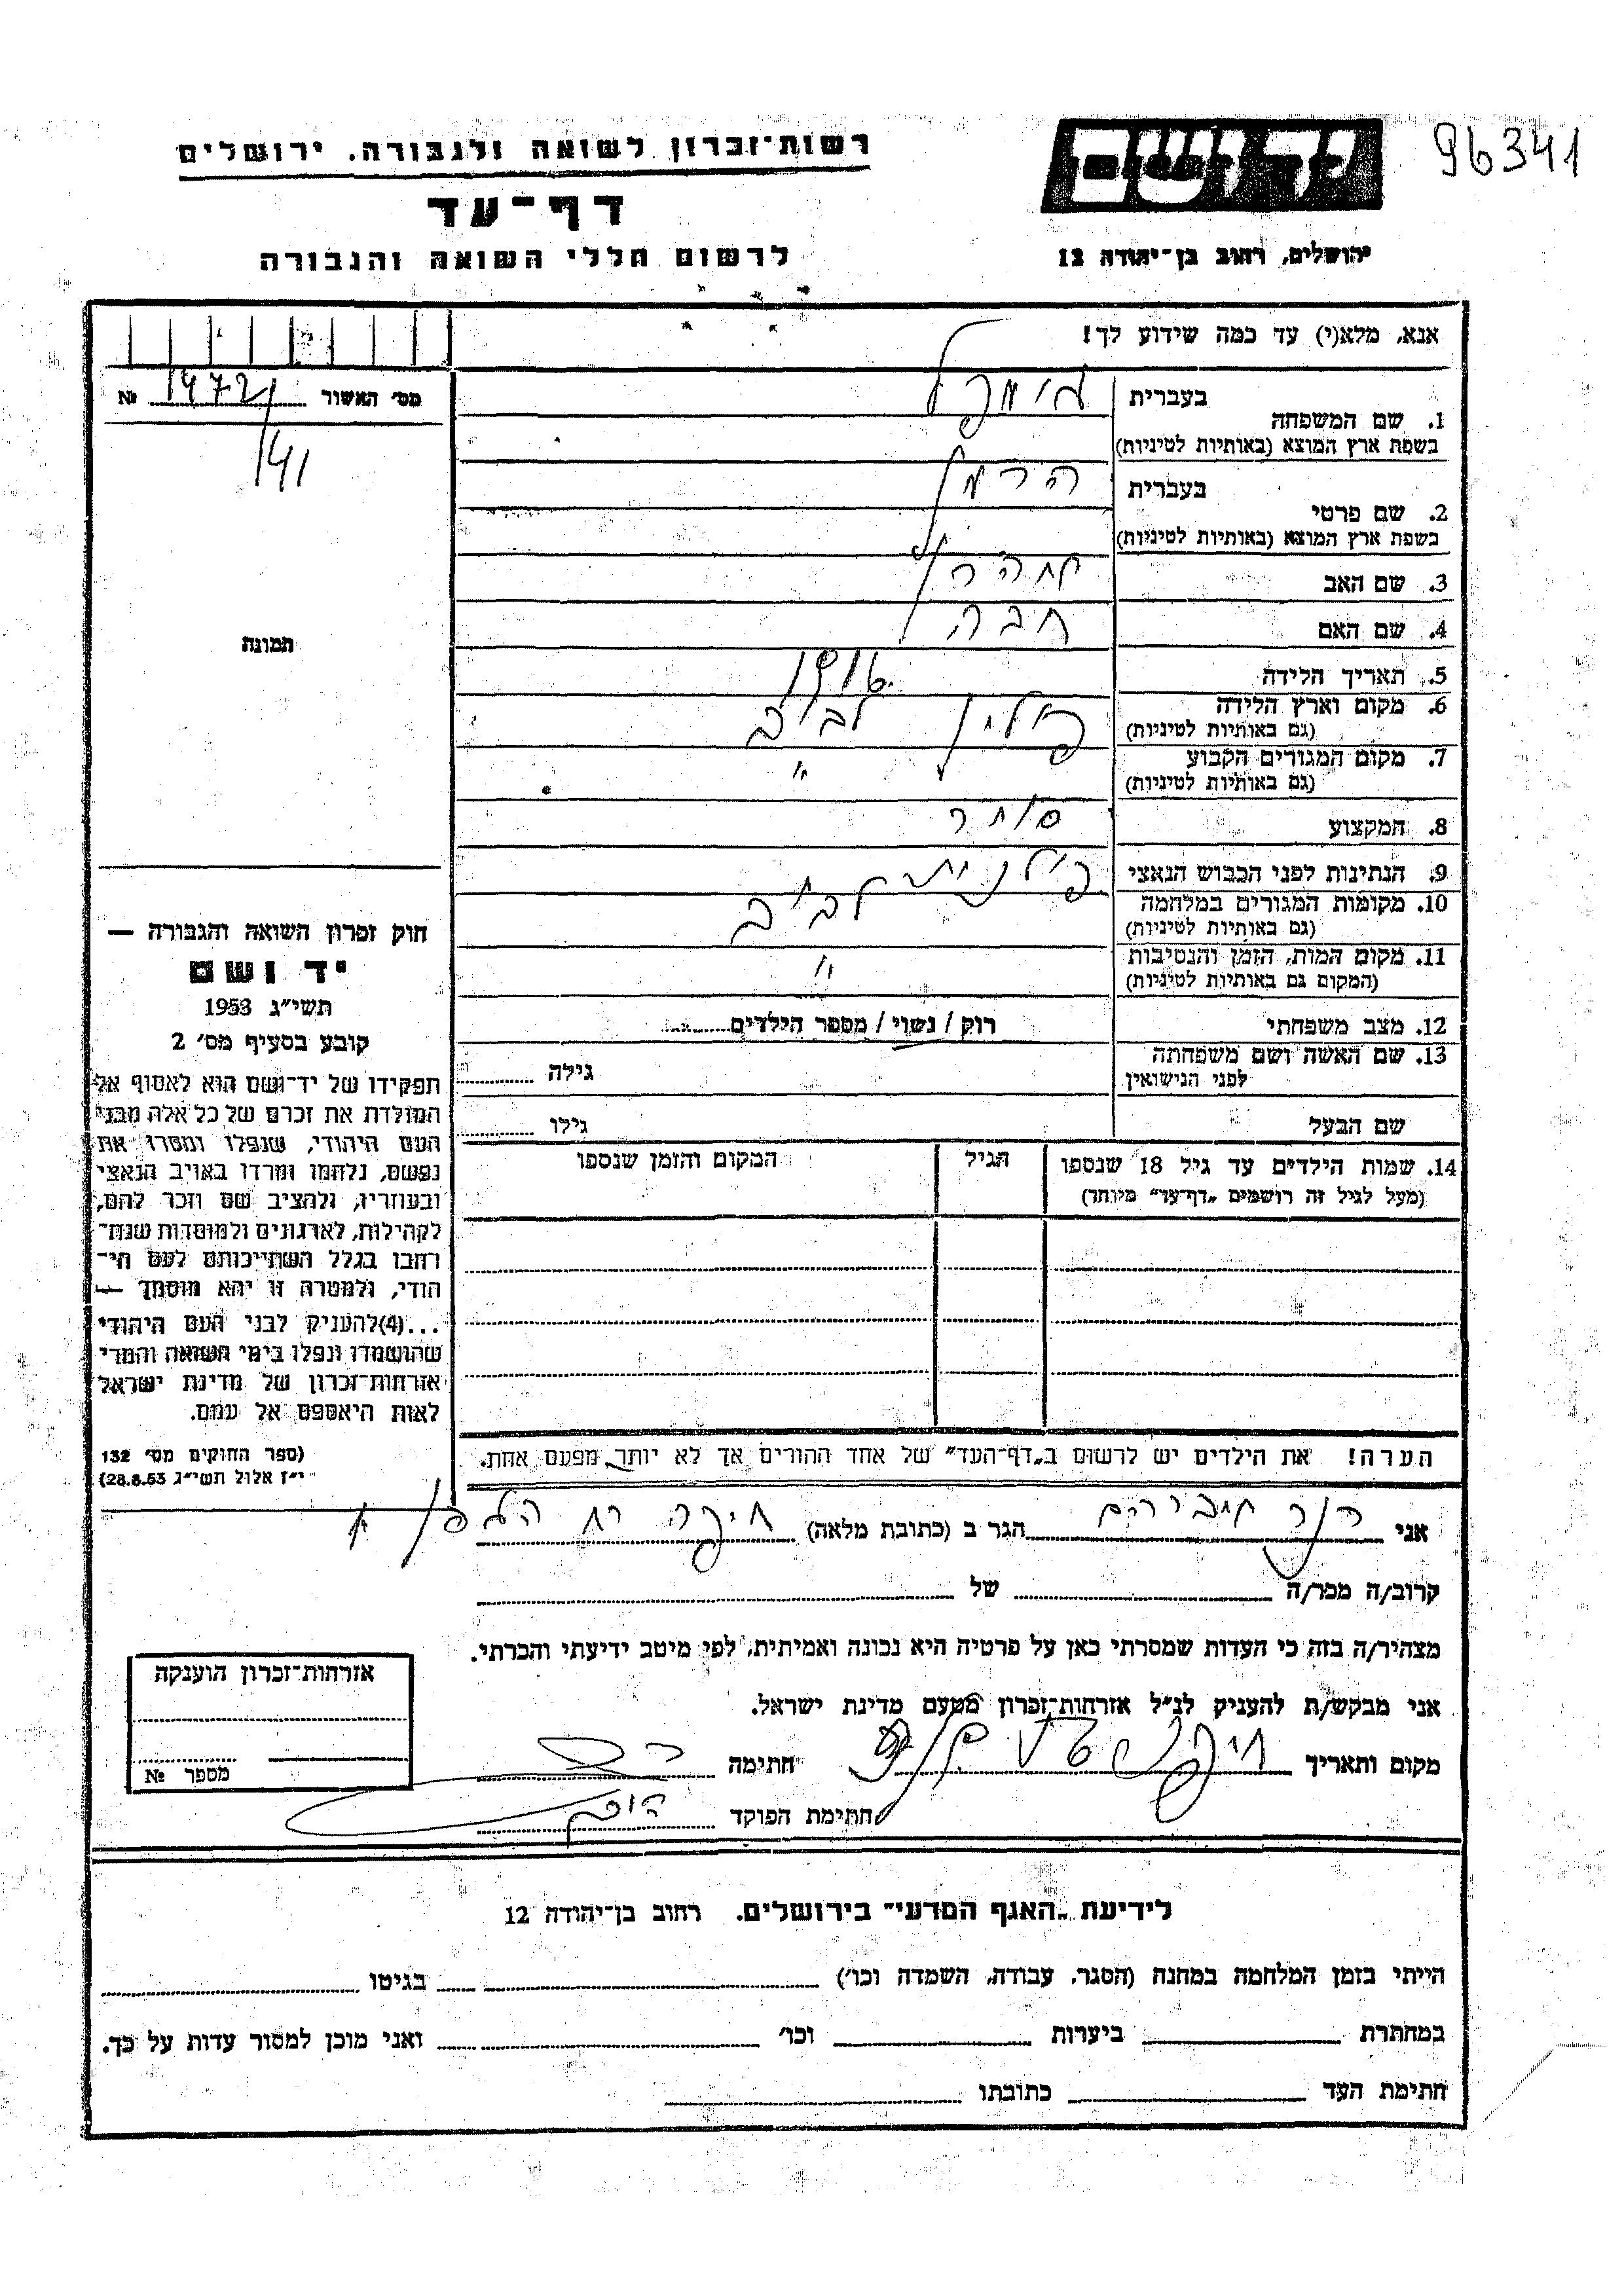 96341
יד ושם
רשות־זכרון לשואה ולגבורה, ירושלים
דף־עד
לרשום חללי השואה והגבורה
ירושלים, רחוב בן־יהודה 12
אנא, מלא(י) עד כמה שידוע לך!
מס׳ האשור 1472 №
141
תמונה
בעברית
1. שם המשפחה
בשפת ארץ המוצא (באותיות לטיניות)
בעברית הרמן
2. שם פרטי
בשפת ארץ המוצא (באותיות לטיניות)
3. שם האב
4. שם האם חבה
5. תאריך הלידה
6. מקום וארץ הלידה פולין לבוב
(גם באותיות לטיניות)
7. מקום המגורים הקבוע "
(גם באותיות לטיניות)
8. המקצוע סוחר
9. הנתינות לפני הכבוש הנאצי פולנית
10. מקומות המגורים במלחמה לבוב
(גם באותיות לטיניות)
11. מקום המות, הזמן והנסיבות "
(המקום גם באותיות לטיניות)
12. מצב משפחתי רוק / נשוי / מספר הילדים
13. שם האשה ושם משפחתה גילה
לפני הנישואין
שם הבעל גילו
14. שמות הילדים עד גיל 18 שנספו הגיל המקום והזמן שנספו
(מעל לגיל זה רושמים „דף־עד" מיוחד)
הערה! את הילדים יש לרשום ב„דף־העד" של אחד ההורים אך לא יותר מפעם אחת.
חוק זכרון השואה והגבורה —
יד ושם
תשי״ג 1953
קובע בסעיף מס׳ 2
תפקידו של יד־ושם הוא לאסוף אל
המולדת את זכרם של כל אלה מבני
העם היהודי, שנפלו ומסרו את
נפשם, נלחמו ומרדו באויב הנאצי
ובעוזריו, ולהציב שם וזכר להם,
לקהילות, לארגונים ולמוסדות שנח־
רבו בגלל השתייכותם לעם הי־
הודי, ולמטרה זו יהא מוסמך —
...(4)להעניק לבני העם היהודי
שהושמדו ונפלו בימי השואה והמרי
אזרחות־זכרון של מדינת ישראל
לאות היאספם אל עמם.
(ספר החוקים מס׳ 132
י״ז אלול תשי״ג 28.8.53)
אני הגר ב (כתובת מלאה) חיפה רח
קרוב/ה מכר/ה של
מצהיר/ה בזה כי העדות שמסרתי כאן על פרטיה היא נכונה ואמיתית, לפי מיטב ידיעתי והכרתי.
אני מבקש/ת להעניק לנ״ל אזרחות־זכרון מטעם מדינת ישראל.
מקום ותאריך חיפה חתימה
חתימת הפוקד
אזרחות־זכרון הוענקה
מספר №
לידיעת „האגף המדעי" בירושלים. רחוב בן־יהודה 12
הייתי בזמן המלחמה במחנה (הסגר, עבודה, השמדה וכו׳) בגיטו
במחתרת ביערות וכו׳ ואני מוכן למסור עדות על כך.
חתימת העד כתובתו